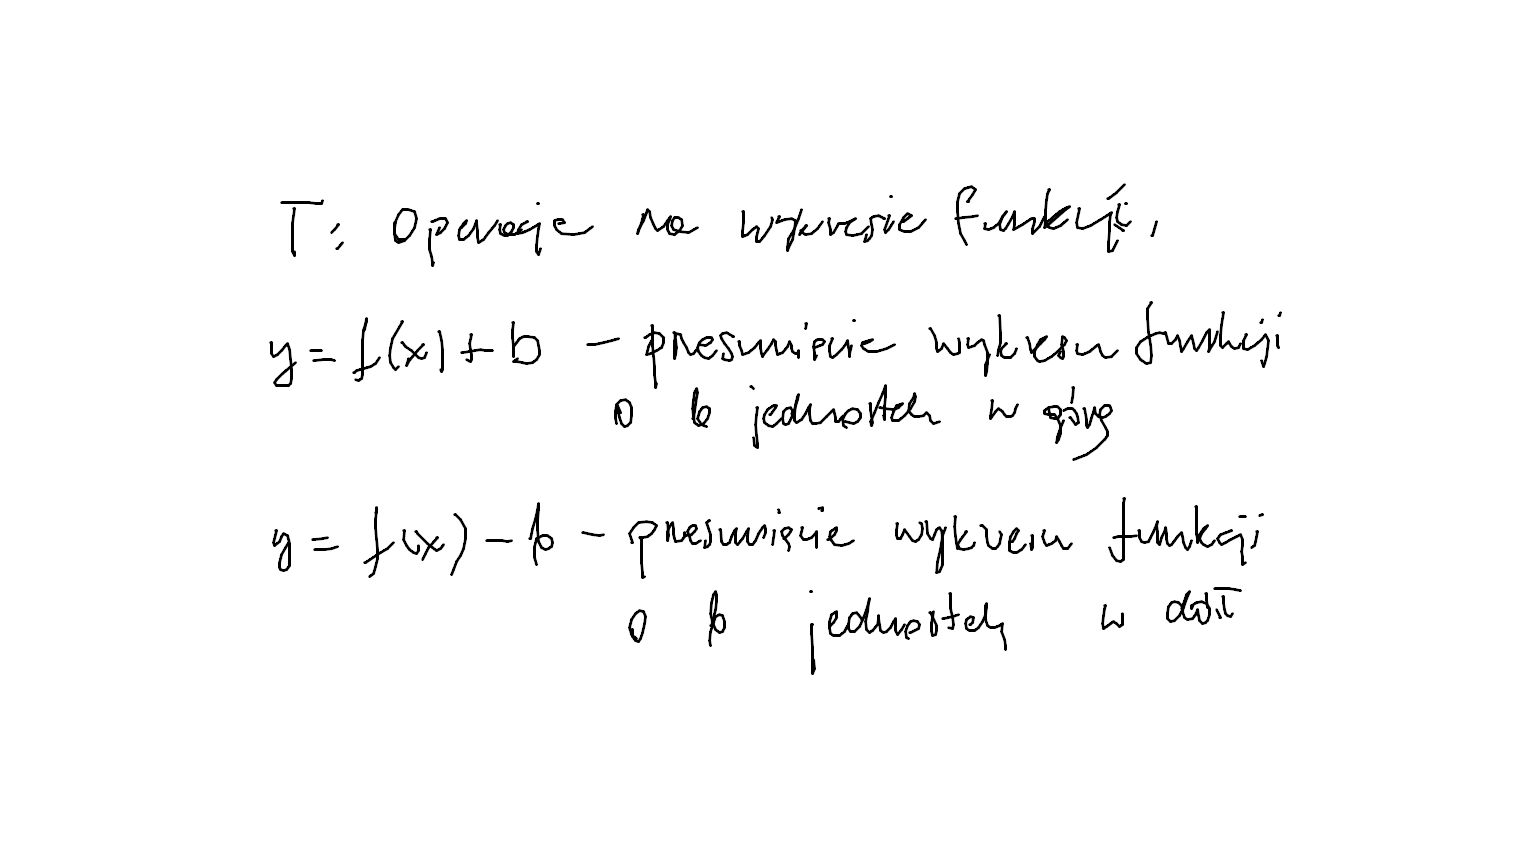 T: Operacje na wykresie funkcji.
y = f(x) + b – przesunięcie wykresu funkcji
o b jednostek w górę
y = f(x) – b – przesunięcie wykresu funkcji
o b jednostek w dół